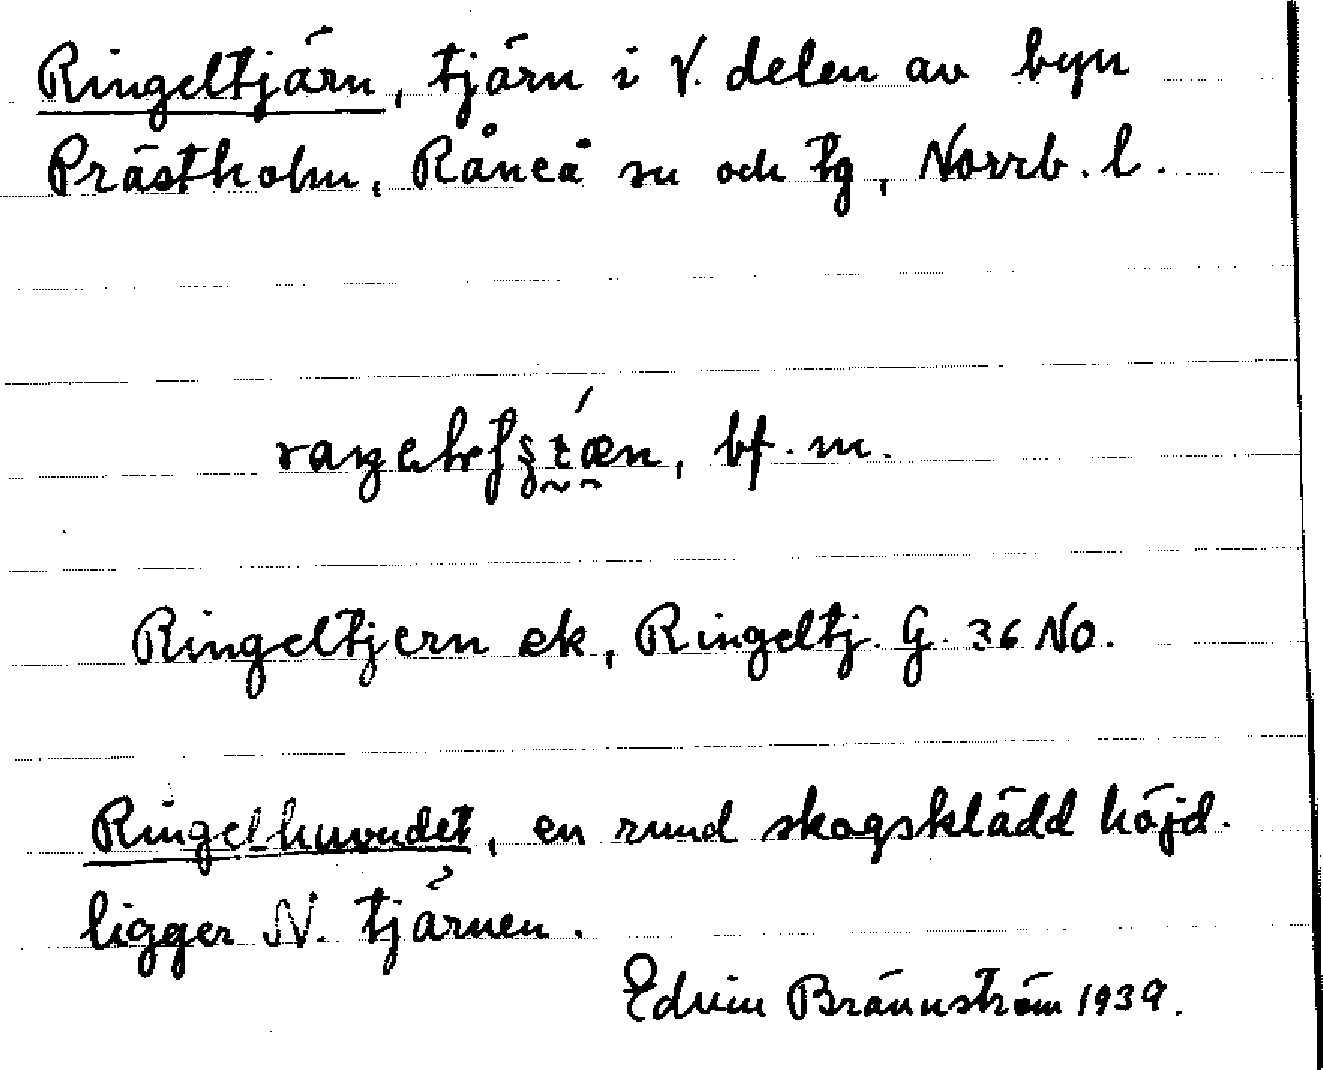 Ringeltjärn, tjärn i V. delen av byn
Prästholm, Råneå sn och tg, Norrb. l.
bf. m.
Ringeltjern ek, Ringeltj. G. 36 No.
Ringelhuvudet, en rund skogsklädd höjd.
ligger N. tjärnen.
Edvin Brännström 1939.